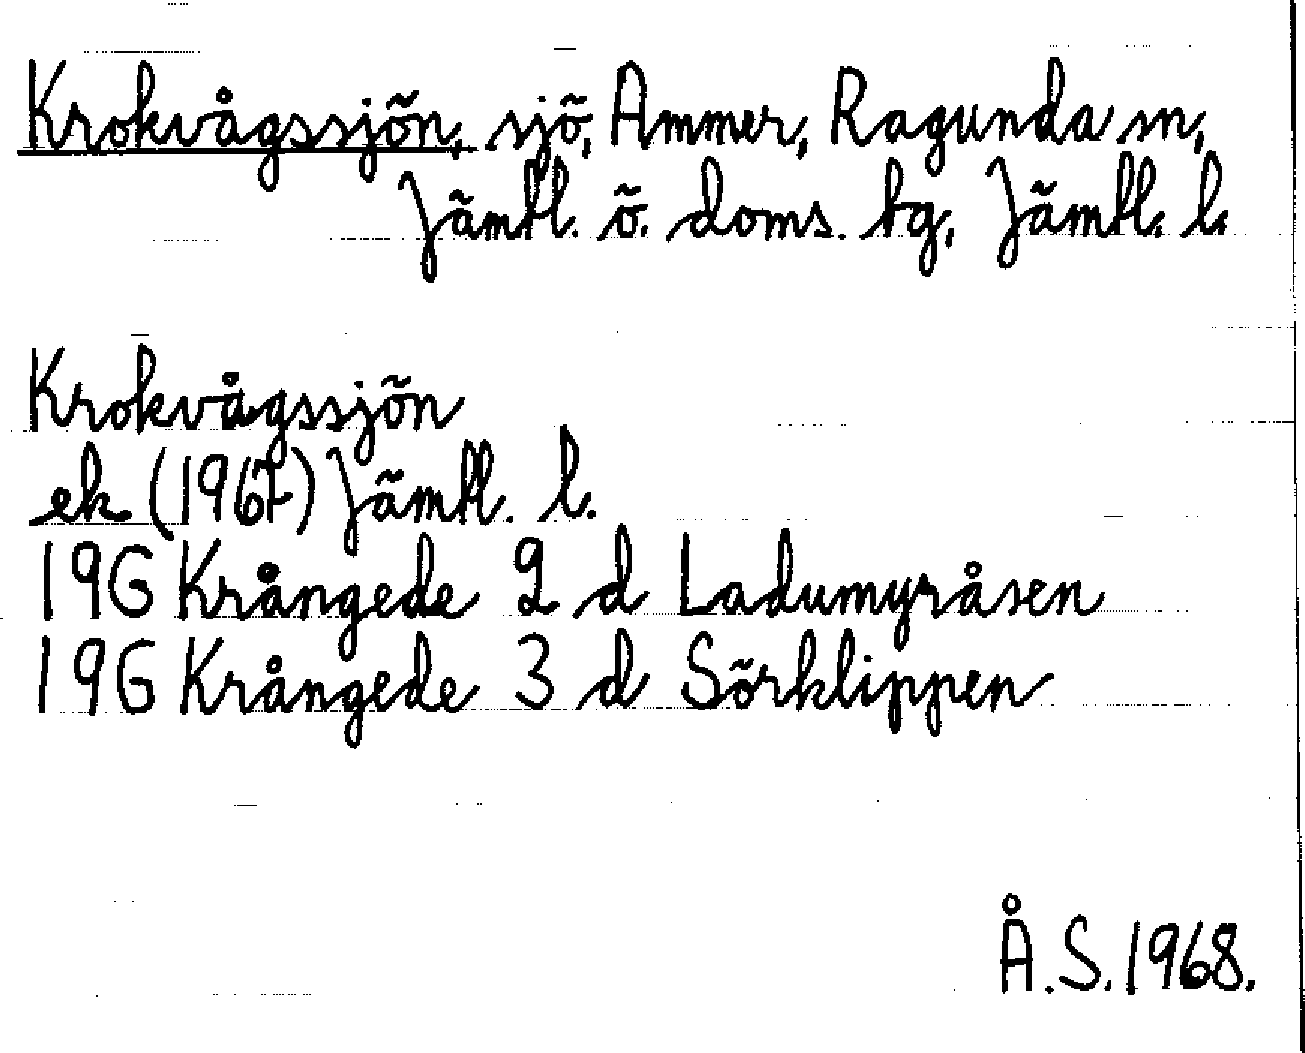 Krokvågssjön, sjö, Ammer, Ragunda sn,
Jämtl. ö. doms. tg, Jämtl. l.
Krokvågssjön
ek (1967) Jämtl. l.
19G Krångede 2 d Ladumyråsen
19G Krångede 3 d Sörklippen
Å.S. 1968.